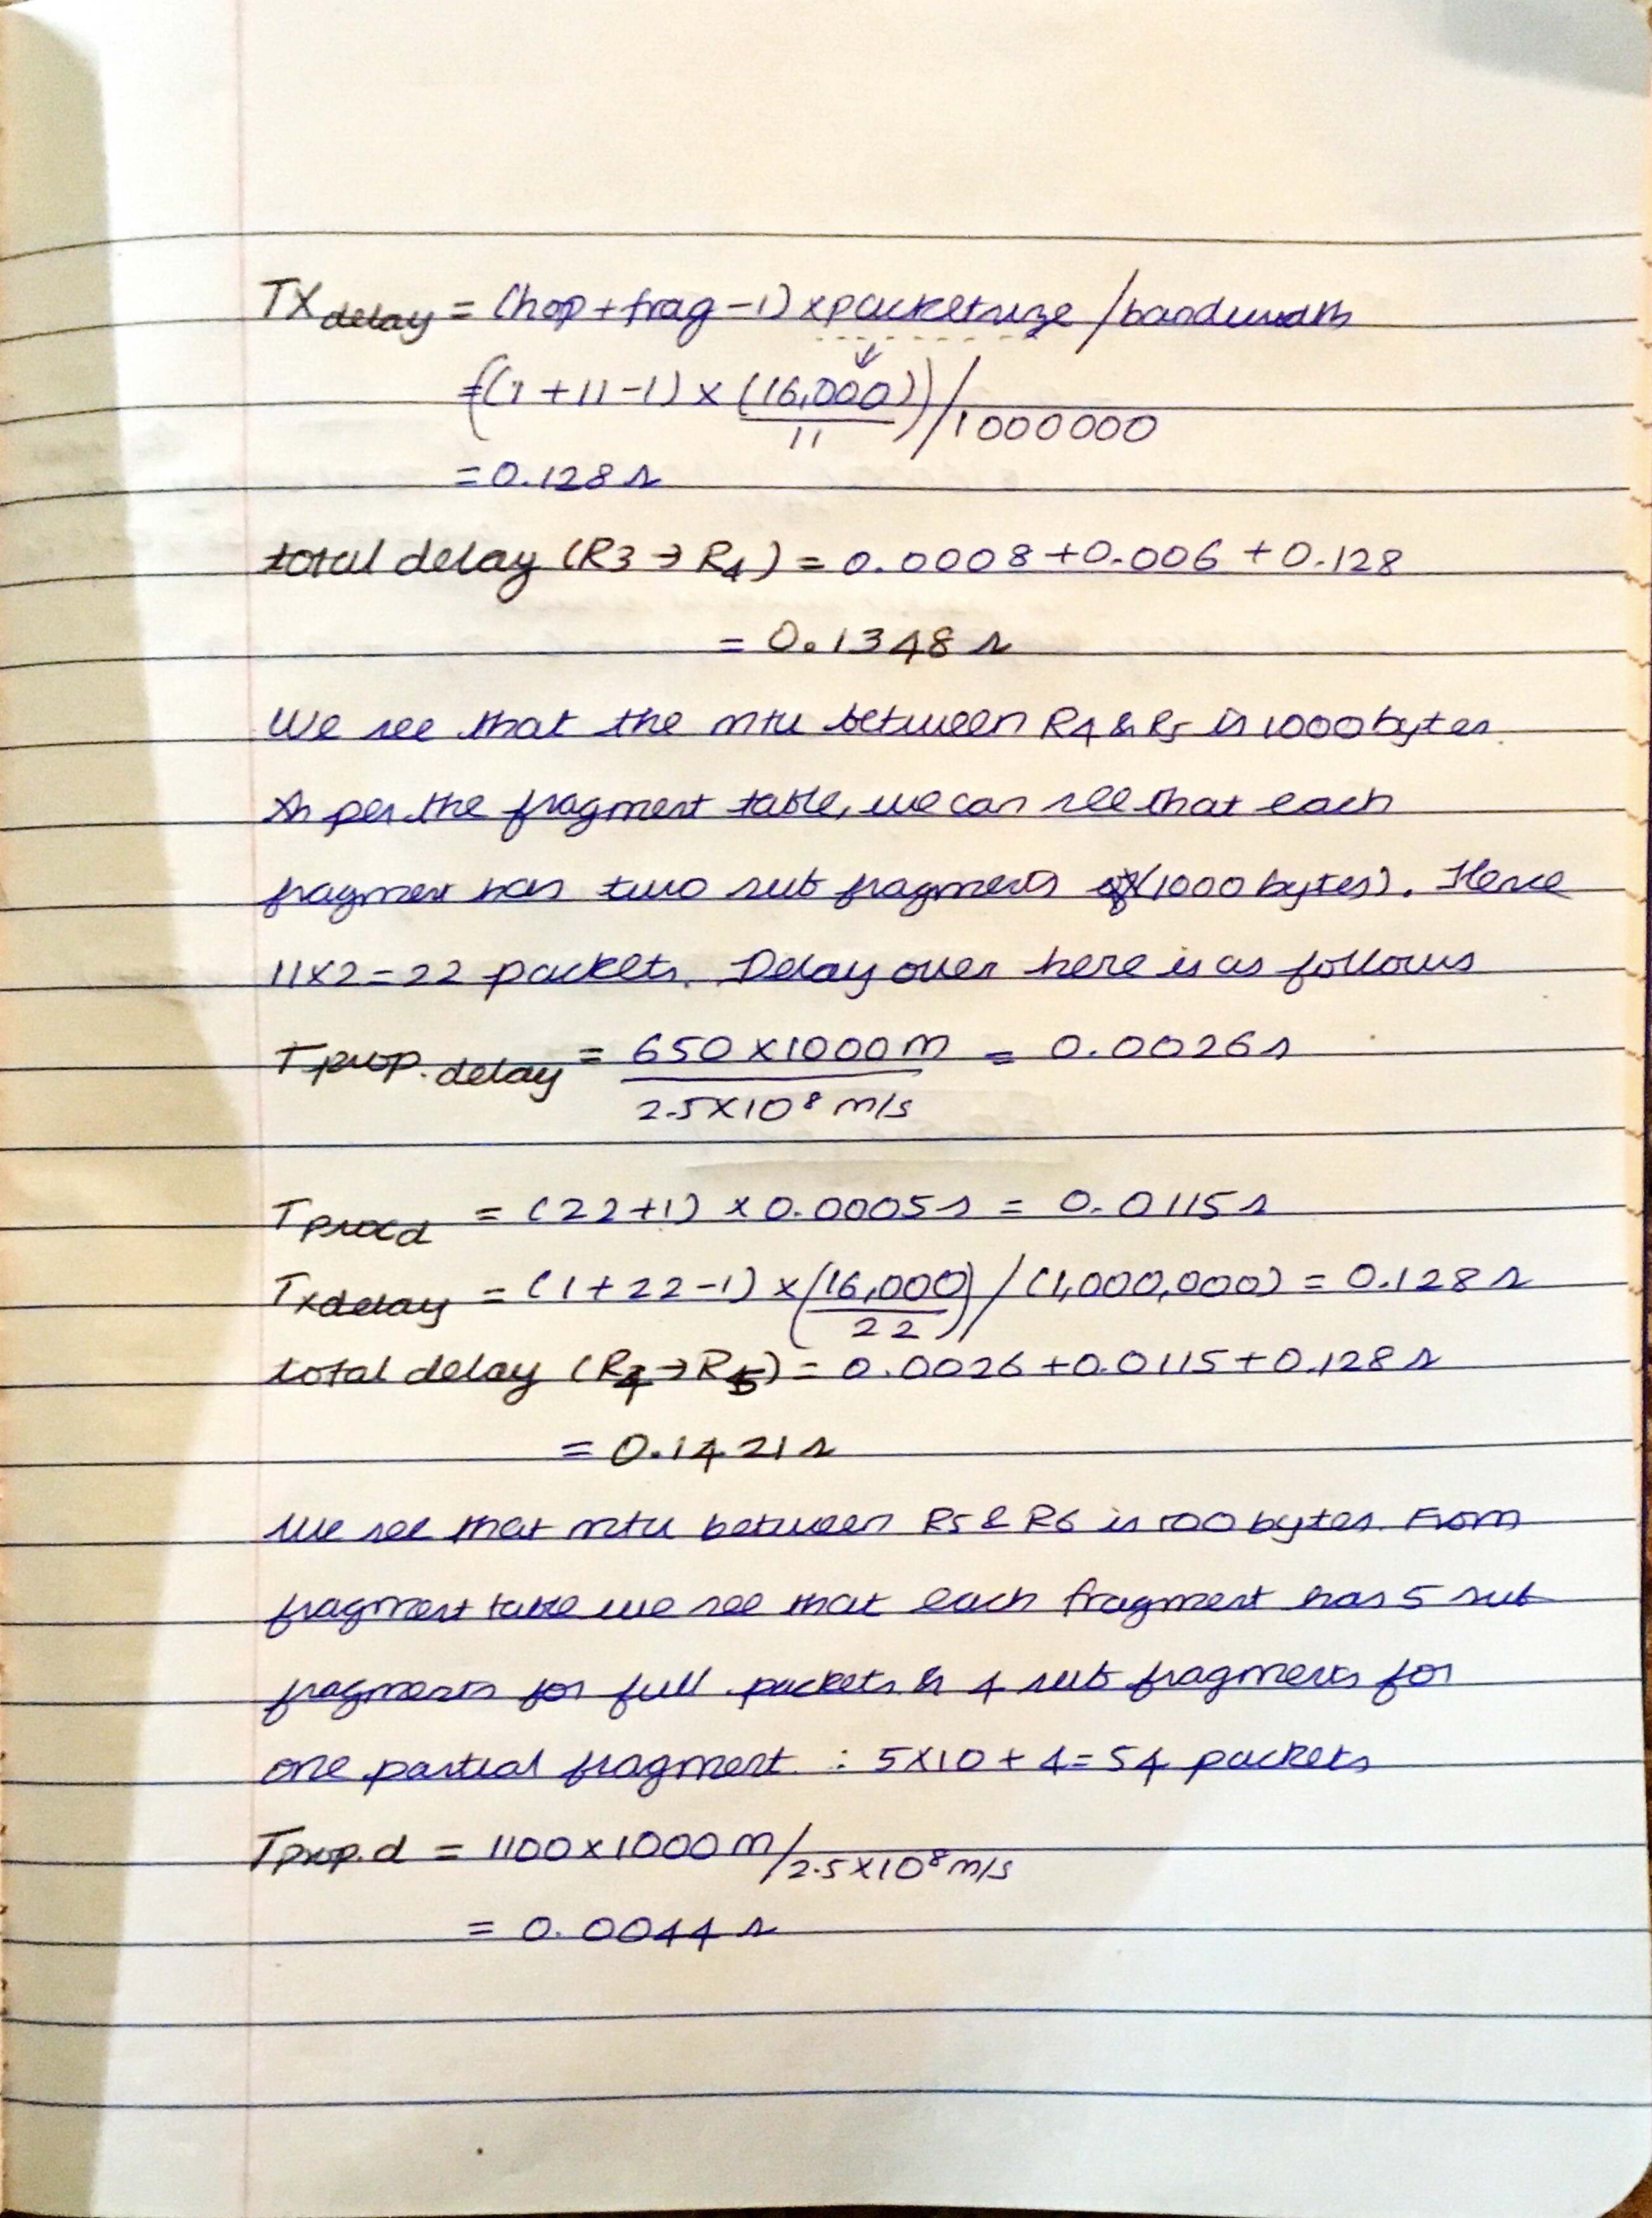 TXdelay = (hop + frag - 1) x packetsize / bandwidth
= ((1 + 11 - 1) x (16,000)/11) / 1000000
= 0.128 s
total delay (R3 → R4) = 0.0008 + 0.006 + 0.128
= 0.1348 s
We see that the mtu between R4 & R5 is 1000 bytes.
As per the fragment table, we can see that each
fragment has two sub fragments of (1000 bytes). Hence
11 x 2 = 22 packets. Delay over here is as follows
Tprop.delay = 650 x 1000 m / 2.5 x 10^8 m/s = 0.0026 s
Tprocd = (22 + 1) x 0.0005 s = 0.0115 s
Txdelay = (1 + 22 - 1) x (16,000/22) / (1,000,000) = 0.128 s
total delay (R4 → R5) = 0.0026 + 0.0115 + 0.128 s
= 0.1421 s
We see that mtu between R5 & R6 is 500 bytes. From
fragment table we see that each fragment has 5 sub
fragments for full packets & 4 sub fragments for
one partial fragment. : 5 x 10 + 4 = 54 packets
Tprop.d = 1100 x 1000 m / 2.5 x 10^8 m/s
= 0.0044 s